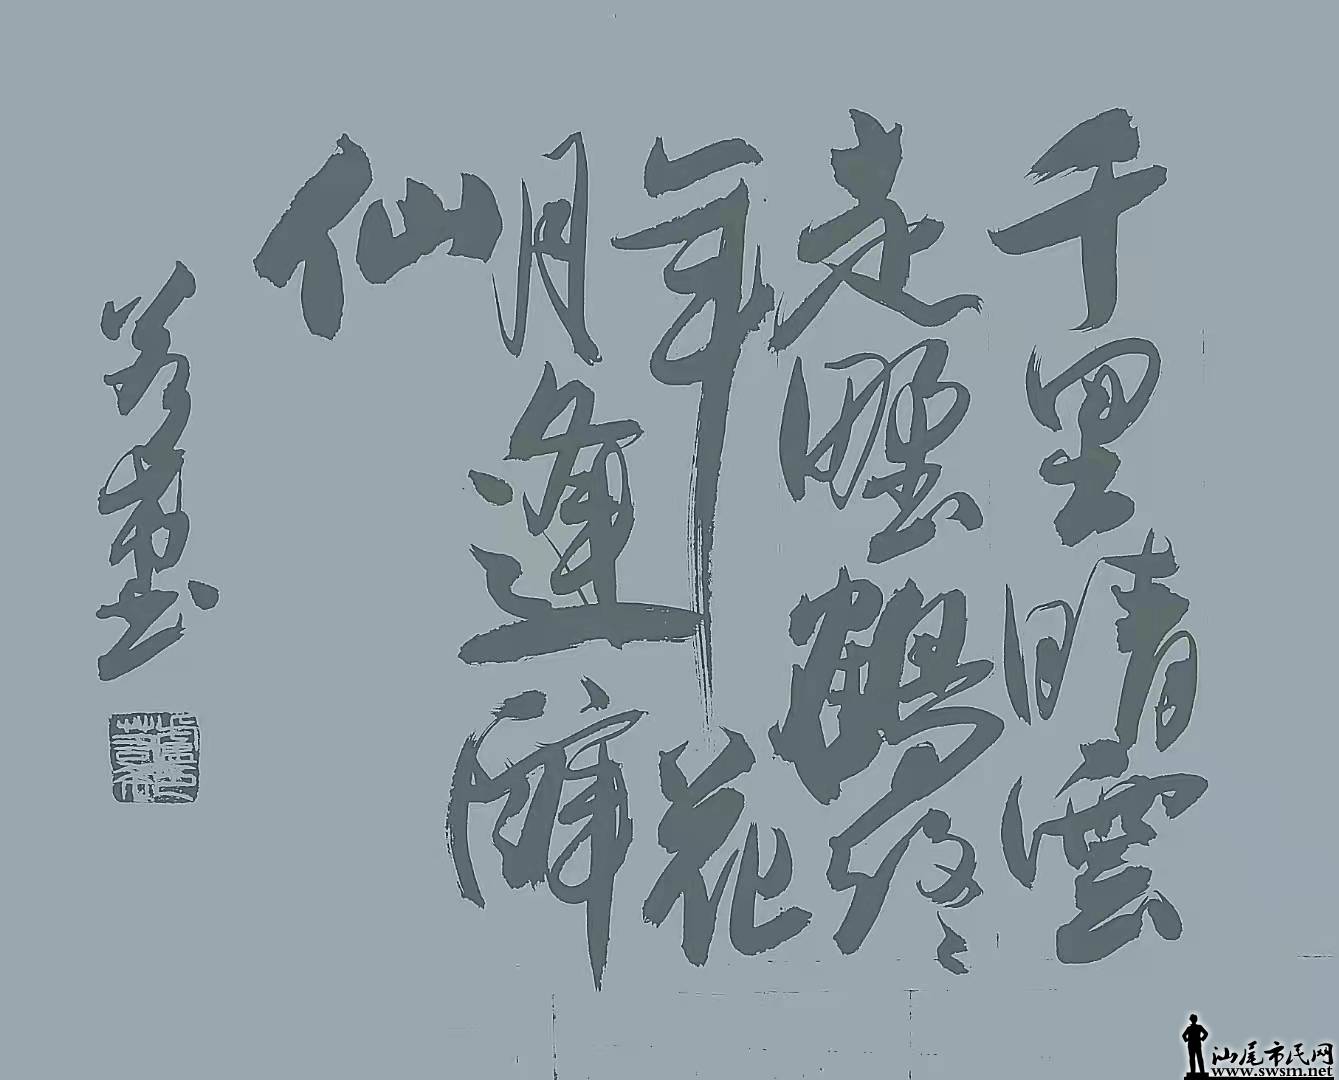 千里晴雲
走野鶴終
年花
月逢醉
仙
汕尾市民网
www.swsm.net